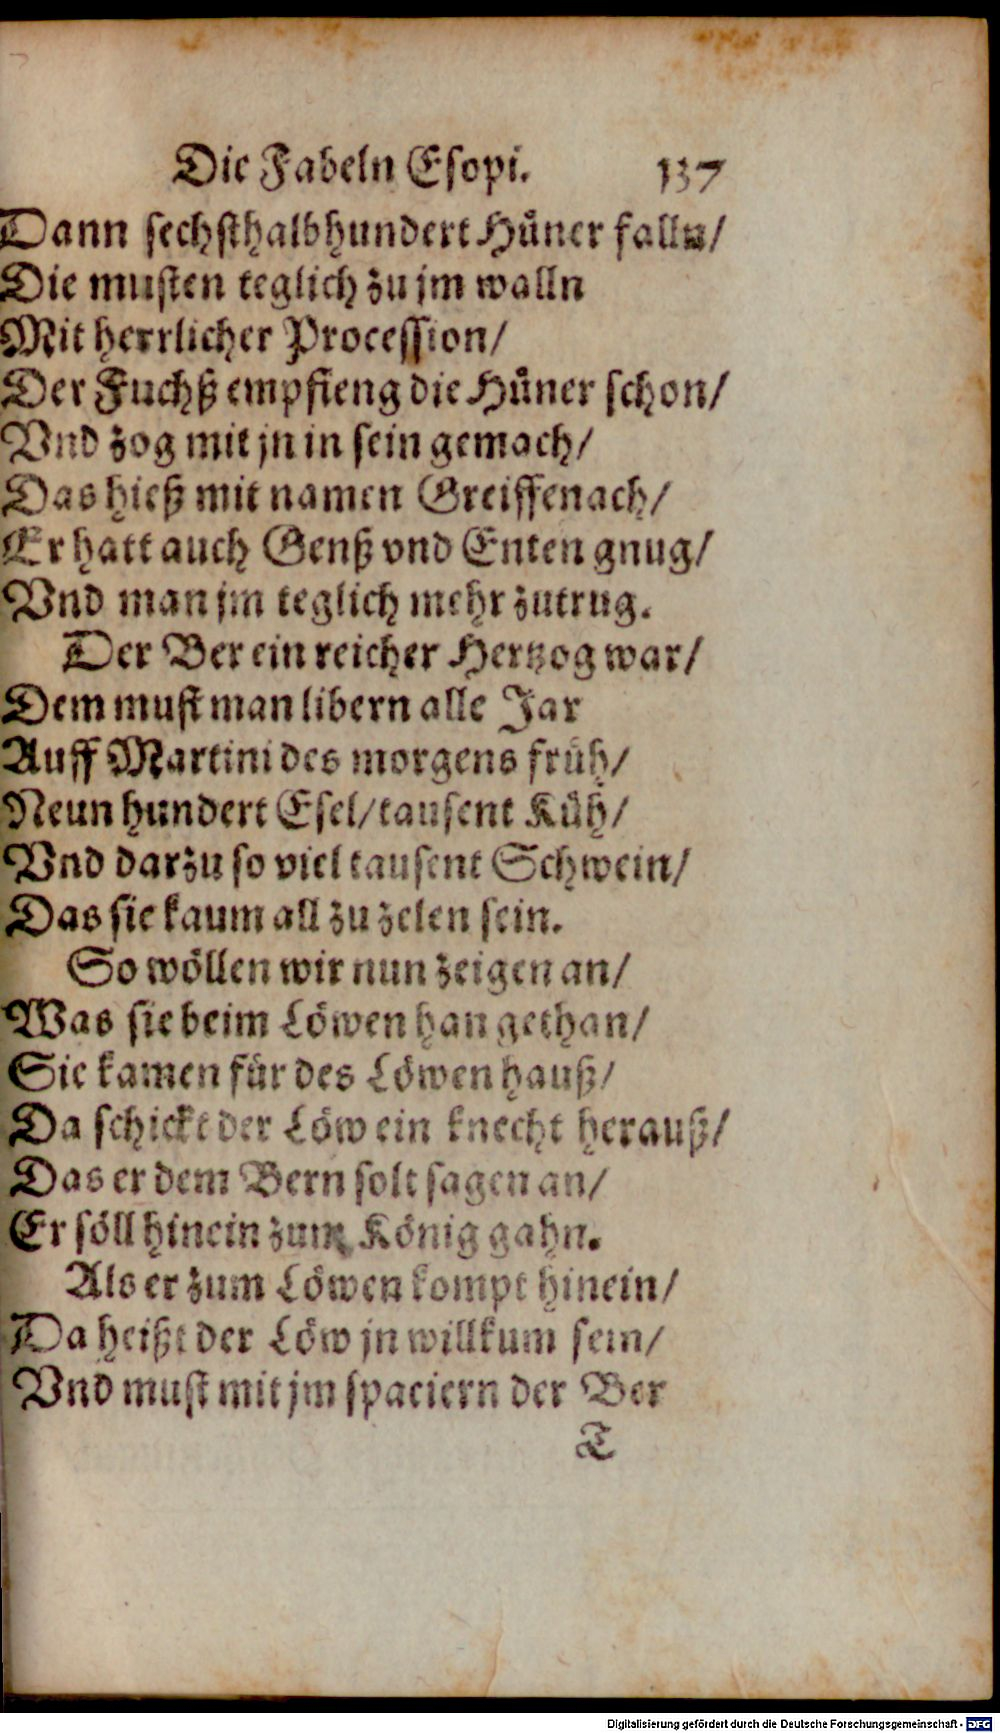 Die Fabeln Esopi. 137
Dann sechsthalbhundert Hůner falln/
Die musten teglich zu jm walln
Mit herrlicher Procession/
Der Fuchß empfieng die Hůner schon/
Vnd zog mit jn in sein gemach/
Das hieß mit namen Greiffenach/
Er hatt auch Genß vnd Enten gnug/
Vnd man jm teglich mehr zutrug.
Der Ber ein reicher Hertzog war/
Dem must man libern alle Jar
Auff Martini des morgens früh/
Neun hundert Esel/tausent Küh/
Vnd darzu so viel tausent Schwein/
Das sie kaum all zu zelen sein.
So wöllen wir nun zeigen an/
Was sie beim Löwen han gethan/
Sie kamen für des Löwen hauß/
Da schickt der Löw ein knecht herauß/
Das er dem Bern solt sagen an/
Er söll hinein zum König gahn.
Als er zum Löwen kompt hinein/
Da heißt der Löw jn willkum sein/
Vnd must mit jm spaciern der Ber
T
Digitalisierung gefördert durch die Deutsche Forschungsgemeinschaft - DFG